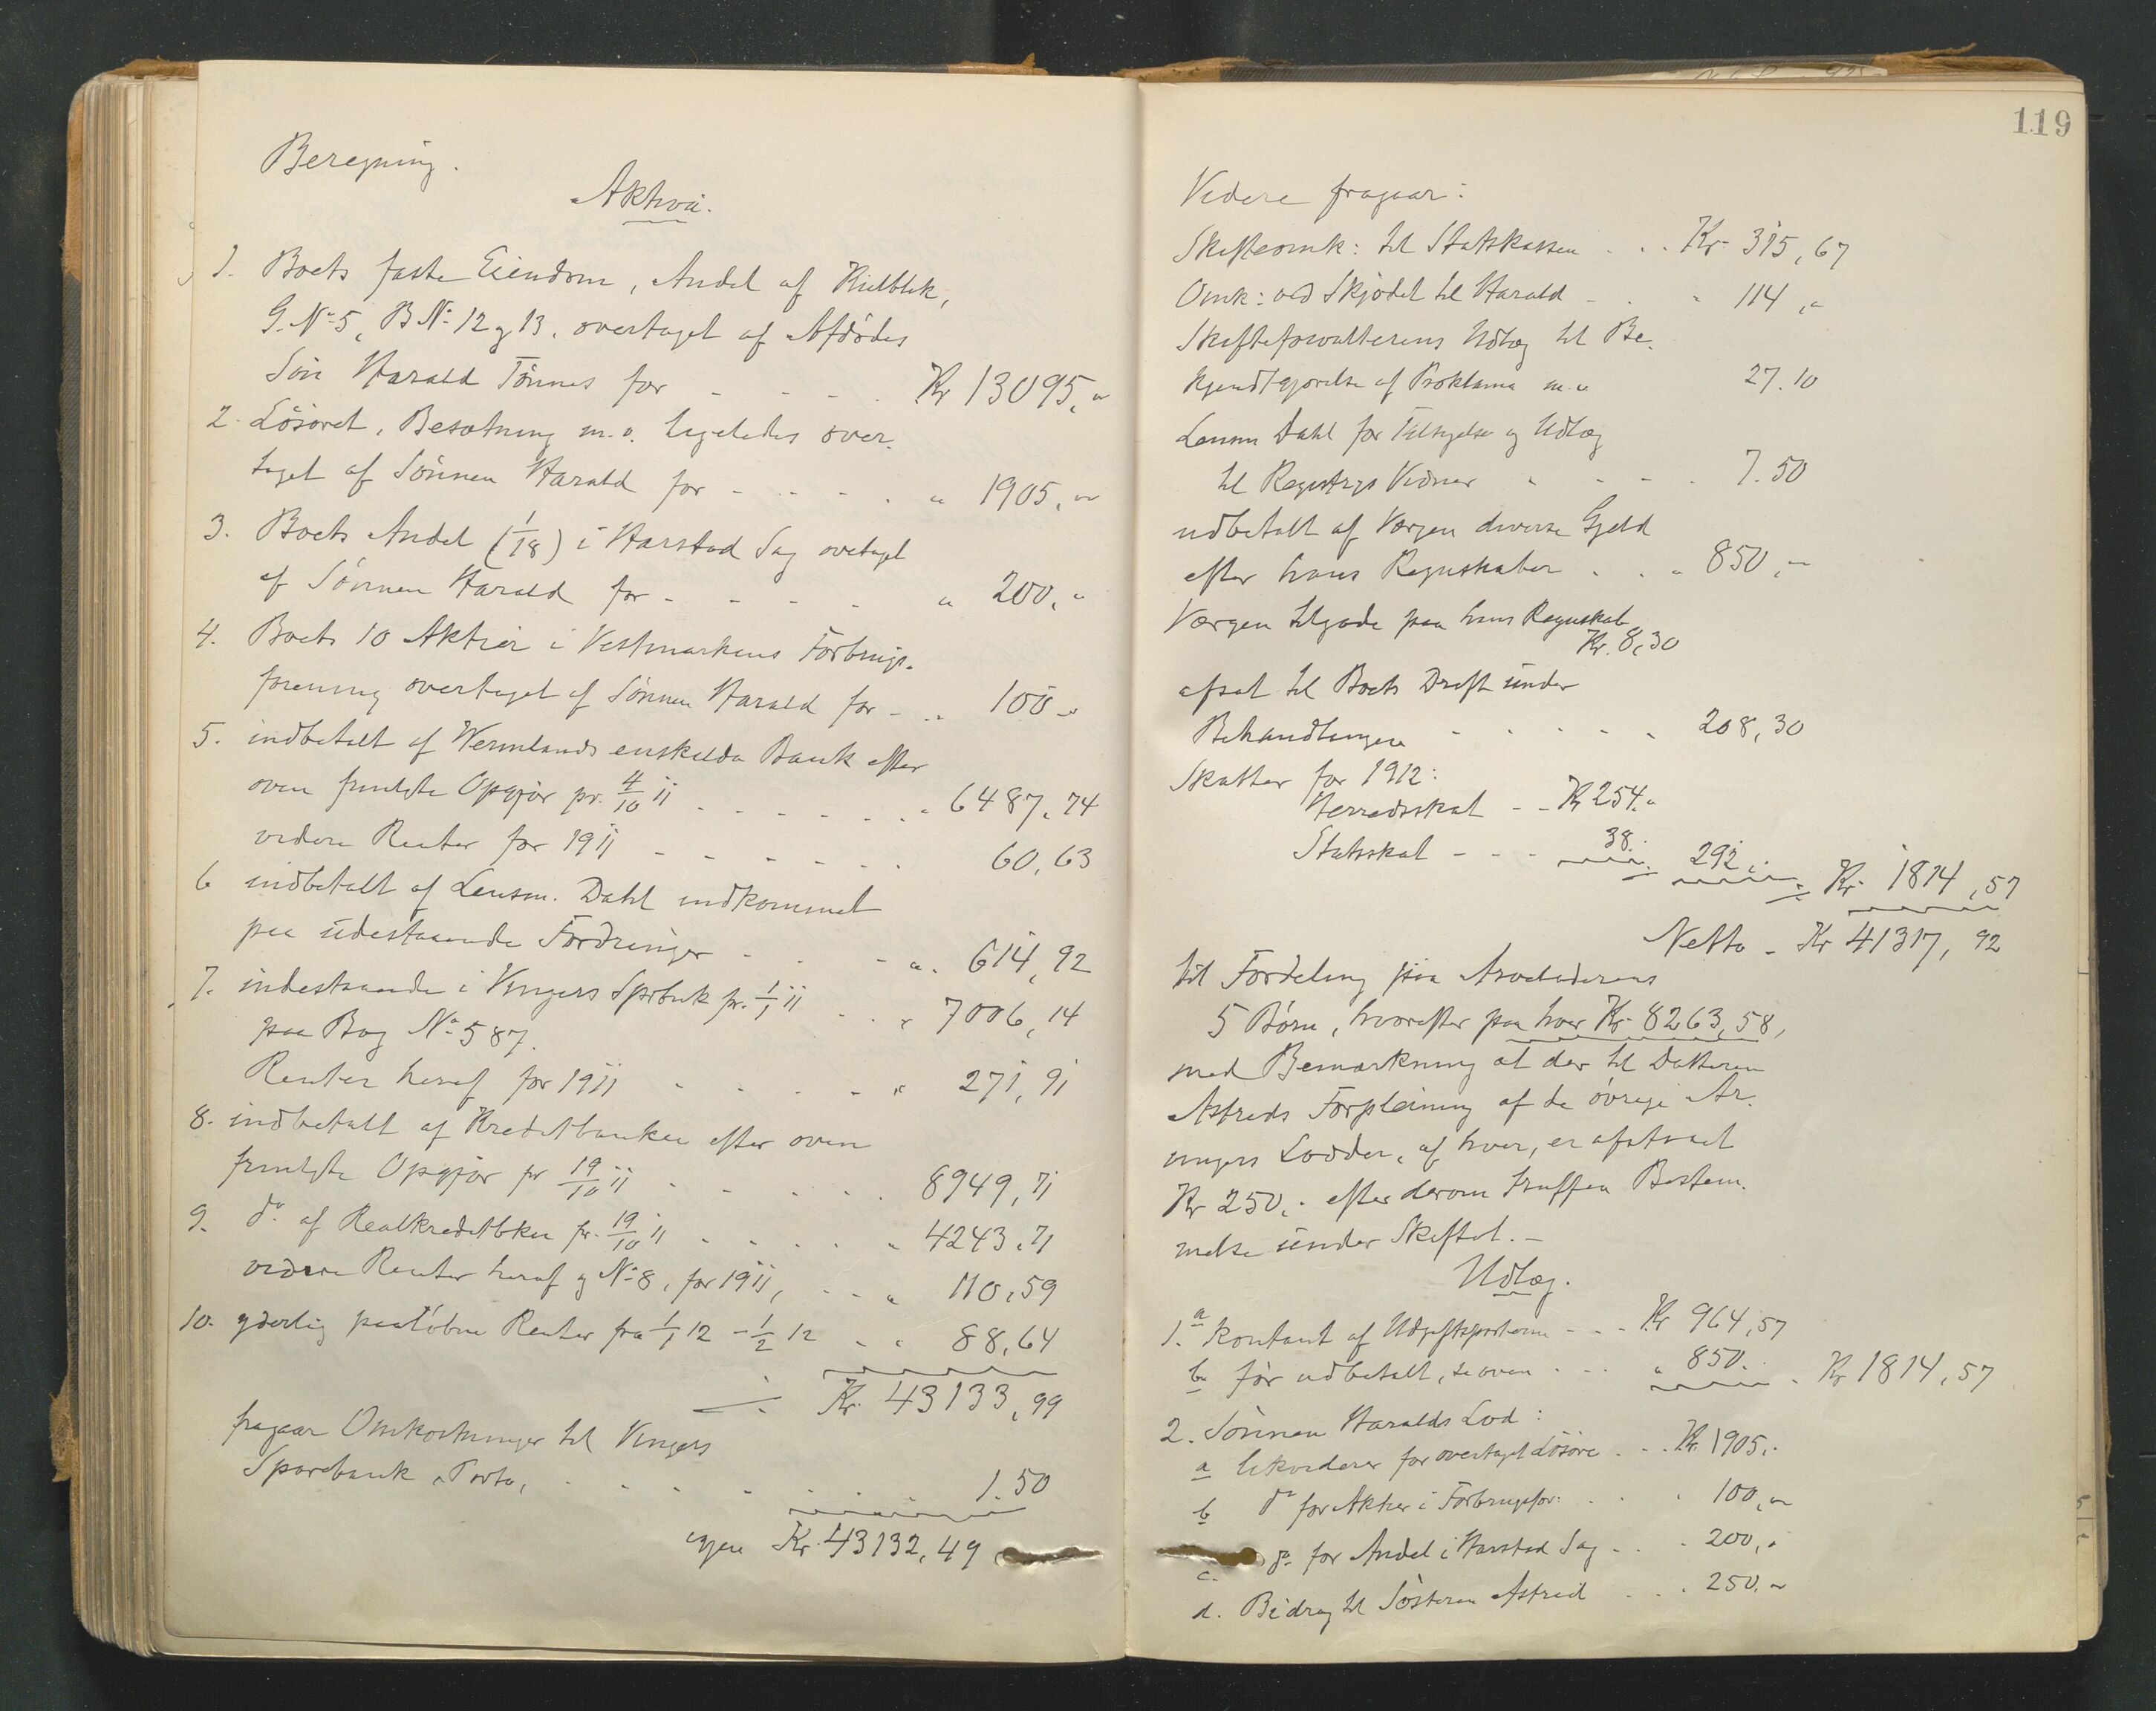 Beregning.
Aktiva.
1. Boets faste Eiendom, Andel af Kielblek,
G. No 5, B No 12 og 13, overtaget af Afdödes
Sön Harald Tönnes for - - - - Kr 13095,"
2. Lösöret, Besætning m. v. ligeledes over-
taget af Sönnen Harald for - - - - " 1905,"
3. Boets Andel (1/18) i Harstad Sag overtaget
af Sönnen Harald for - - - - " 200,"
4. Boets 10 Aktier i Vestmarkens Forbrugs-
forening overtaget af Sönnen Harald for - - 100 "
5. indbetalt af Wermlands enskilda Bank efter
oven fremlagte Opgjör pr. 4/10 11 - - - - - " 6487,74
videre Renter for 1911 - - - - - - 60,63
6 indbetalt af Lensm. Dahl indkommet
paa udestaaende Fordringer - - - " 614,92
7. indestaaende i Vingers Sprbnk pr. 1/1 11 - - " 7006,14
paa Bog No 587.
Renter heraf for 1911 - - - - " 271,91
8. indbetalt af Kreditbanken efter oven
fremlagte Opgjör pr 19/10 11 - - - - - 8949,71
9. do af Realkreditbken pr. 19/10 11 - - - - - " 4243,71
videre Renter heraf og No 8, for 1911, - - " 110,59
10. yderlig paalöbne Renter fra 1/1 12 - 1/2 12 - " 88,64
÷ Kr. 43133,99
fragaar Omkostninger til Vingers
Sparebank, Porto, - - - - - - - 1.50
igjen Kr. 43132,49
119
Videre fragaar:
Skifteomk: til Statskassen - - - Kr. 315,67
Omk: ved Skjödet til Harald - - " 114,"
Skifteforvalterens Udlæg til Be-
kjendtgjörelse af Proklama m. v 27.10
Lensm Dahl for Tilsigelse og Udlæg
til Registrgs Vidner " - - - 7.50
udbetalt af Værgen diverse Gjeld
efter hans Regnskaber - - " 850,"
Værgen tilgode paa hans Regnskab
Kr. 8,30
afsat til Boets Drift under
Behandlingen - - - - - - 208,30
Skatter for 1912:
Herredsskat - - Kr 254."
Statsskat - - - 38.- 292,- Kr. 1814,57
Netto - Kr 41317,92
til Fordeling paa Arveladerens
5 Börn, hvorefter paa hver Kr. 8263,58,
med Bemærkning at der til Datteren
Astrids Forpleining af de övrige Ar-
vingers Lodder, af hver, er afsat
Kr 250,- efter derom truffen Bestem-
melse under Skiftet. -
Udlæg.
1. a kontant af Udgiftsposterne - - - Kr 964,57
b för udbetalt, se oven - - - " 850.- - Kr 1814,57
2. Sönnen Haralds Lod:
a likviderer for overtaget Lösöre - - Kr. 1905,-
b do for Aktier i Forbrugsfor: - - " 100,"
c. do for Andel i Harstad Sag - - - 200,"
d. Bidrag til Sösteren Astrid - - - 250."